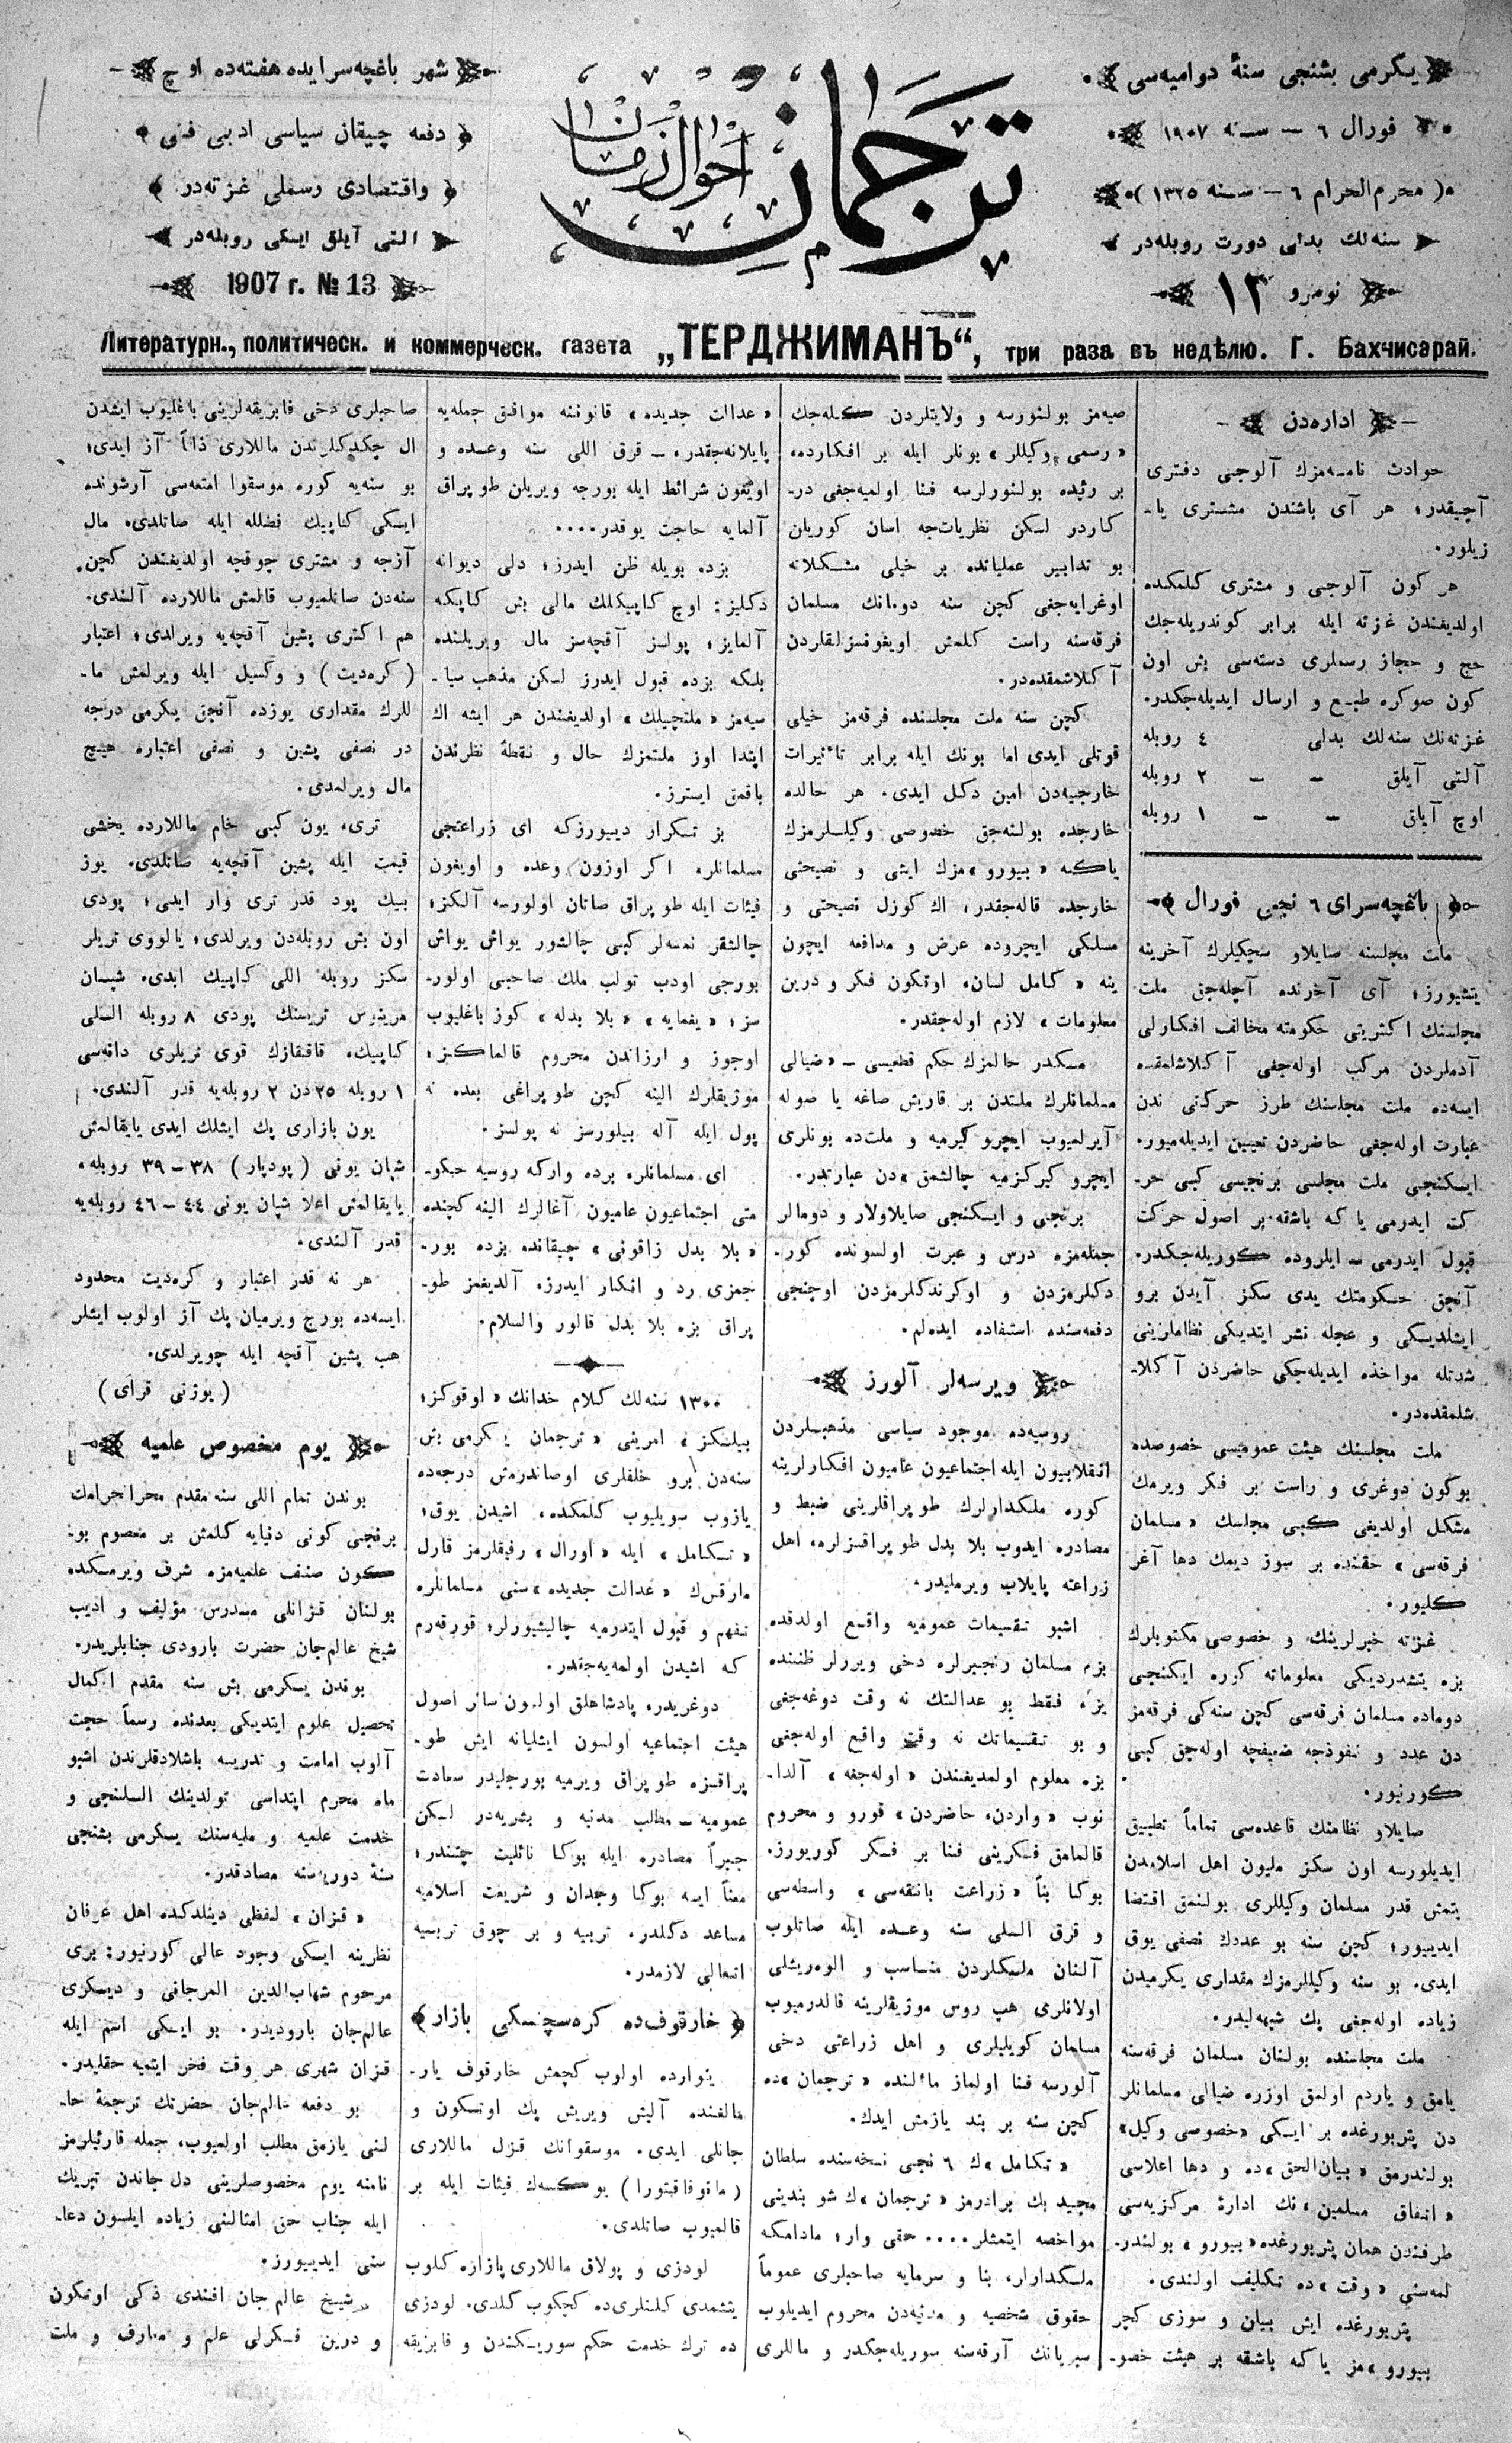 یكرمی بشنجی سنهٔ دوامیه‌سی
فورال ٦ – سنه ١٩٠٧
(محرم‌الحرام ٦ – سنه ١٣٢٥)
سنه‌لك بدلی دورت روبله‌در
نومرو ١٣
ترجمان
احوال زمان
شهر باغچه‌سرایده هفته‌ده اوچ
دفعه چیقان سیاسی ادبی فنی
واقتصادی رسملی غزته‌در
التی آیلق ایكی روبله‌در
1907 г. № 13
Литературн., политическ. и коммерческ. газета „ТЕРДЖИМАНЪ“, три раза въ недѣлю. Г. Бахчисарай.
اداره‌دن
حوادث نامه‌مزك آلوجی دفتری
آچیقدر؛ هر آی باشندن مشتری یا-
زیلور.
هر كون آلوجی و مشتری كلمكده
اولدیغندن غزته ایله برابر كوندریله‌جك
حج و حجاز رسملری دسته‌سی بش اون
كون صوكره طبع و ارسال ایدیله‌جكدر.
غزته‌نك سنه‌لك بدلی ٤ روبله
آلتی آیلق – – ٢ روبله
اوچ آیلق – – ١ روبله
باغچه‌سرای ٦ نجی فورال
ملت مجلسنه صایلاو سچكیلرك آخرینه
یتشیورز؛ آی آخرنده آچله‌جق ملت
مجلسنك اكثریتی حكومته مخالف افكارلی
آدملردن مركب اوله‌جغی آكلاشلمقده
ایسه‌ده ملت مجلسنك طرز حركتی ندن
عبارت اوله‌جغی حاضردن تعیین ایدیله‌میور.
ایكنجی ملت مجلسی برنجیسی كبی حر-
كت ایدرمی یا كه باشقه بر اصول حركت
قبول ایدرمی – ایلروده كوریله‌جكدر.
آنجق حكومتك یدی سكز آیدن برو
ایشلدیكی و عجله نشر ایتدیكی نظاملرینی
شدتله مواخذه ایدیله‌جكی حاضردن آكلا-
شلمقده‌در.
ملت مجلسنك هیئت عمومیسی خصوصده
بوكون دوغری و راست بر فكر ویرمك
مشكل اولدیغی كبی مجلسك «مسلمان
فرقه‌سی» حقنده بر سوز دیمك دها آغر
كلیور.
غزته خبرلرینك و خصوصی مكتوبلرك
بزه یتشدردیكی معلوماته كوره ایكنجی
دوماده مسلمان فرقه‌سی كچن سنه‌كی فرقه‌مز
دن عدد و نفوذجه ضعیفچه اوله‌جق كبی
كورنیور.
صایلاو نظامنك قاعده‌سی تماماً تطبیق
ایدیلورسه اون سكز ملیون اهل اسلامدن
یتمش قدر مسلمان وكیللری بولنمق اقتضا
ایدییور؛ كچن سنه بو عددك نصفی یوق
ایدی. بو سنه وكیللرمزك مقداری یكرمیدن
زیاده اوله‌جغی پك شبهه‌لیدر.
ملت مجلسنده بولنان مسلمان فرقه‌سنه
یامق و یاردم اولمق اوزره ضیالی مسلمانلر
دن پتربورغده بر ایكی «خصوصی وكیل»
بولندرمق «بیان‌الحق»ده و دها اعلاسی
«اتفاق مسلمین»نك ادارهٔ مركزیه‌سی
طرفندن همان پتربورغده «بیورو» بولندر-
لمه‌سنی «وقت»ده تكلیف اولندی.
پتربورغده ایش بیان و سوزی كچر
بیورو»مز یا كه باشقه بر هیئت خصو-
صیه‌مز بولنورسه و ولایتلردن كله‌جك
«رسمی وكیللر» بونلر ایله بر افكارده،
بر رئیده بولنورلرسه فنا اولمیه‌جغی در-
كاردر لكن نظریات‌جه اسان كوریلن
بو تدابیر عملیاتده بر خیلی مشكلاته
اوغرایه‌جغی كچن سنه دومانك مسلمان
فرقه‌سنه راست كلمش اویغونسزلقلردن
آكلاشمقده‌در.
كچن سنه ملت مجلسنده فرقه‌مز خیلی
قوتلی ایدی اما بونك ایله برابر تأثیرات
خارجیه‌دن امین دكل ایدی. هر حالده
خارجده بولنه‌جق خصوصی وكیللرمزك
یاكه «بیورو»مزك ایشی و نصیحتی
خارجده قاله‌جقدر؛ اك كوزل نصیحتی و
مسلكی ایچروده عرض و مدافعه ایچون
ینه «كامل لسان، اوتكون فكر و درین
معلومات» لازم اوله‌جقدر.
مكدر حالمزك حكم قطعیسی – «ضیالی
مسلمانلرك ملتدن بر قاریش صاغه یا صوله
آیرلمیوب ایچرو كیرمیه و ملت‌ده بونلری
ایچرو كیركزمیه چالشمق»دن عبارتدر.
برنجی و ایكنجی صایلاولار و دومالر
جمله‌مزه درس و عبرت اولسونده كور-
دكلرمزدن و اوكرندكلرمزدن اوچنجی
دفعه‌سنده استفاده ایده‌لم.
ویرسه‌لر آلورز
روسیه‌ده موجود سیاسی مذهبلردن
انقلابیون ایله اجتماعیون عامیون افكارلرینه
كوره ملكدارلرك طوپراقلرینی ضبط و
مصادره ایدوب بلا بدل طوپراقسزلره، اهل
زراعته پایلاب ویرملیدر.
اشبو تقسیمات عمومیه واقع اولدقده
بزم مسلمان رنجبرلره دخی ویررلر ظننده
یز، فقط بو عدالتك نه وقت دوغه‌جغی
و بو تقسیماتك نه وقت واقع اوله‌جغی
بزه معلوم اولمدیغندن «اوله‌جغه» آلدا-
نوب «واردن، حاضردن» قورو و محروم
قالمامق فكرینی فنا بر فكر كوریورز.
بوكا بناً «زراعت بانقه‌سی» واسطه‌سی
و قرق اللی سنه وعده ایله صاتلوب
آلنان ملكلردن مناسب و الوریشلی
اولانلری هپ روس موژیقلرینه قالدرمیوب
مسلمان كویلیلری و اهل زراعتی دخی
آلورسه فنا اولماز مألنده «ترجمان»ده
كچن سنه بر بند یازمش ایدك.
«تكامل»ك ٦ نجی نسخه‌سنده سلطان
مجید بك برادرمز «ترجمان»ك شو بندینی
مواخصه ایتمشلر.... حقی وار؛ مادامكه
ملكدارلر، بنا و سرمایه صاحبلری عموماً
حقوق شخصیه و مدنیه‌دن محروم ایدیلوب
سبریانك آرقه‌سنه سوریله‌جكدر و ماللری
«عدالت جدیده» قانوننه موافق جمله‌یه
پایلانه‌جقدر. – قرق اللی سنه وعده و
اویغون شرائط ایله بورجه ویریلن طوپراق
آلمایه حاجت یوقدر....
بزده بویله ظن ایدرز؛ دلی دیوانه
دكلیز: اوچ كاپیكلك مالی بش كاپیكه
آلمایز؛ پولسز آقچه‌سز مال ویریلنده
بلكه بزده قبول ایدرز لكن مذهب سیا-
سیه‌مز «ملتچیلك» اولدیغندن هر ایشه اك
اپتدا اوز ملتمزك حال و نقطهٔ نظرندن
باقمق ایسترز.
بز تكرار دییورزكه ای زراعتجی
مسلمانلر، اكر اوزون وعده و اویغون
فیئات ایله طوپراق صاتان اولورسه آلكز؛
چالشقر نمسه‌لر كبی چالشور یواش یواش
بورجی اودب تولب ملك صاحبی اولور-
سز؛ «یغمایه» «بلا بدله» كوز باغلیوب
اوجوز و ارزاندن محروم قالماكز؛
موژیقلرك الینه كچن طوپراغی بعده نه
پول ایله آله بیلورسز نه پولسز.
ای مسلمانلر، برده واركه روسیه حكو-
متی اجتماعیون عامیون آغالرك الینه كچنده
«بلا بدل زاقونی» چیقانده بزده بور-
جمزی رد و انكار ایدرز، آلدیغمز طو-
پراق بزه بلا بدل قالور والسلام.
١٣٠٠ سنه‌لك كلام خدانك «اوقوكز؛
بیلكز» امرینی «ترجمان یكرمی بش
سنه‌دن برو خلقلری اوصاندرمش درجه‌ده
یازوب سویلیوب كلمكده، اشیدن یوق؛
«تكامل» ایله «اورال» رفیقلرمز قارل
مارقسك «عدالت جدیده»سنی مسلمانلره
تفهم و قبول ایتدرمیه چالیشیورلر؛ قورقه‌رم
كه اشیدن اولمه‌یه‌جقدر.
دوغریدر، پادشاهلق اولسون سائر اصول
هیئت اجتماعیه اولسون ایشلیانه ایش طو-
پراقسزه طوپراق ویرمیه بورجلیدر سعادت
عمومیه – مطلب مدنیه و بشریه‌در لكن
جبراً مصادره ایله بوكا نائلیت چتندر؛
معناً ایسه بوكا وجدان و شریعت اسلامیه
مساعد دكلدر. تربیه و بر چوق تربیه
انتعالی لازمدر.
خارقوف‌ده كره‌سچنسكی بازار
ینوارده اولوب كچمش خارقوف یار-
مالغنده آلیش ویریش پك اوتسكون و
جانلی ایدی. موسقوانك قزل ماللاری
(مانوفاقتورا) یوكسك فیئات ایله بر
قالمیوب صاتلدی.
لودزی و پولاق ماللاری پازاره كلوب
یتشمدی كلنلری‌ده كچكوب كلدی. لودزی
ده ترك خدمت حكم سوریكندن و فابریقه
صاحبلری دخی فابریقه‌لرینی باغلیوب ایشدن
ال چكدكلرندن ماللاری ذاتاً آز ایدی؛
بو سنه‌یه كوره موسقوا امتعه‌سی آرشونده
ایكی كاپیك فضلله ایله صاتلدی. مال
آزجه و مشتری چوقچه اولدیغندن كچن
سنه‌دن صاتلمیوب قالمش ماللارده آلندی.
هم اكثری پشین آقچه‌یه ویرلدی؛ اعتبار
(كره‌دیت) و وكسیل ایله ویرلمش ما-
للرك مقداری یوزده آنجق یكرمی درجه
در نصفی پشین و نصفی اعتباره هیچ
مال ویرلمدی.
تری، یون كبی خام ماللارده یخشی
قیمت ایله پشین آقچه‌یه صاتلدی. یوز
بیك پود قدر تری وار ایدی؛ پودی
اون بش روبله‌دن ویرلدی؛ یالووی تریلر
سكز روبله اللی كاپیك ایدی. شپان
مرینوس تریسنك پودی ٨ روبله اللی
كاپیك، قافقازك قوی تریلری دانه‌سی
١ روبله ٢٥دن ٢ روبله‌یه قدر آلندی.
یون بازاری پك ایشلك ایدی یایقالمش
شپان یونی (پودپار) ٣٨ – ٣٩ روبله،
یایقالمش اعلا شپان یونی ٤٤ – ٤٦ روبله‌یه
قدر آلندی.
هر نه قدر اعتبار و كره‌دیت محدود
ایسه‌ده بورج ویرمیان پك آز اولوب ایشلر
هب پشین آقچه ایله چویرلدی.
(یوژنی قرای)
یوم مخصوص علمیه
بوندن تمام اللی سنه مقدم محرالحرامك
برنجی كونی دنیایه كلمش بر معصوم بو-
كون صنف علمیه‌مزه شرف ویرمكده
بولنان قزانلی مدرس مؤلیف و ادیب
شیخ عالم‌جان حضرت بارودی جنابلریدر.
بوندن یكرمی بش سنه مقدم اكمال
تحصیل علوم ایتدیكی بعدنده رسماً حجت
آلوب امامت و تدریسه باشلادقلرندن اشبو
ماه محرم اپتداسی تولدینك اللنجی و
خدمت علمیه و ملیه‌سنك یكرمی بشنجی
سنهٔ دوریه‌سنه مصادقدر.
«قزان» لفظی دینلدكده اهل عرفان
نظرینه ایكی وجود عالی كورنیور: بری
مرحوم شهاب‌الدین المرجانی و دیكری
عالم‌جان بارودیدر. بو ایكی اسم ایله
قزان شهری هر وقت فخر ایتمیه حقلیدر.
بو دفعه عالم‌جان حضرتك ترجمهٔ حا-
لنی یازمق مطلب اولمیوب، جمله قارئیلرمز
نامنه یوم مخصوصلرینی دل جاندن تبریك
ایله جناب حق امثالنی زیاده ایلسون دعا-
سنی ایدییورز.
شیخ عالم جان افندی ذكی اوتكون
و درین فكرلی علم و معارف و ملت